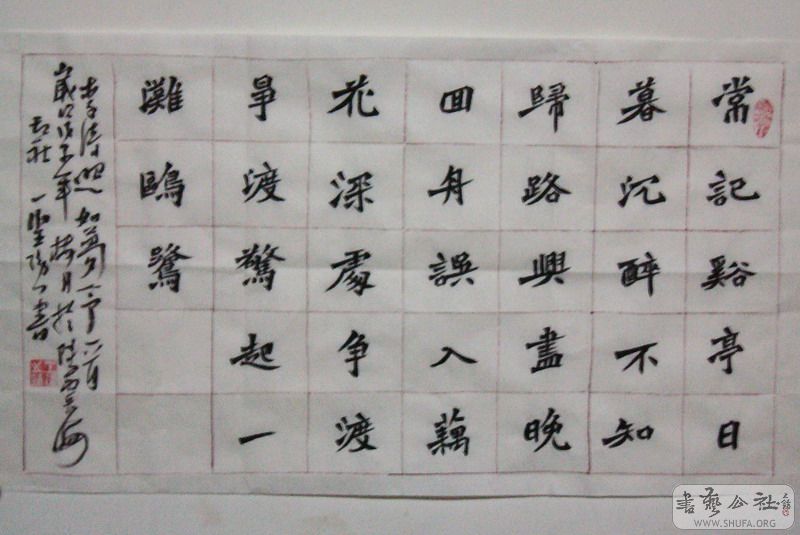 常記谿亭日
暮沉醉不知
歸路興盡晚
回舟誤入藕
花深處争渡
爭渡驚起一
灘鷗鷺
李清照如夢令一首
歲次戊子年月於
書
書藝公社
WWW.SHUFA.ORG